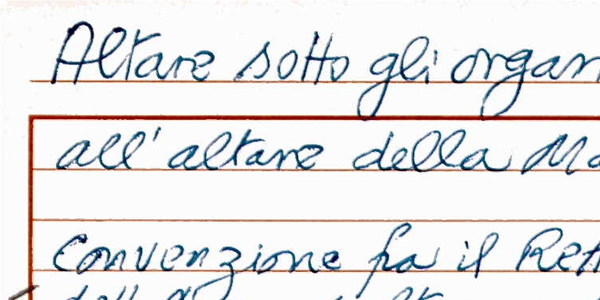 Altare sotto gli organ
all'altare della Ma
Convenzione fra il Rett